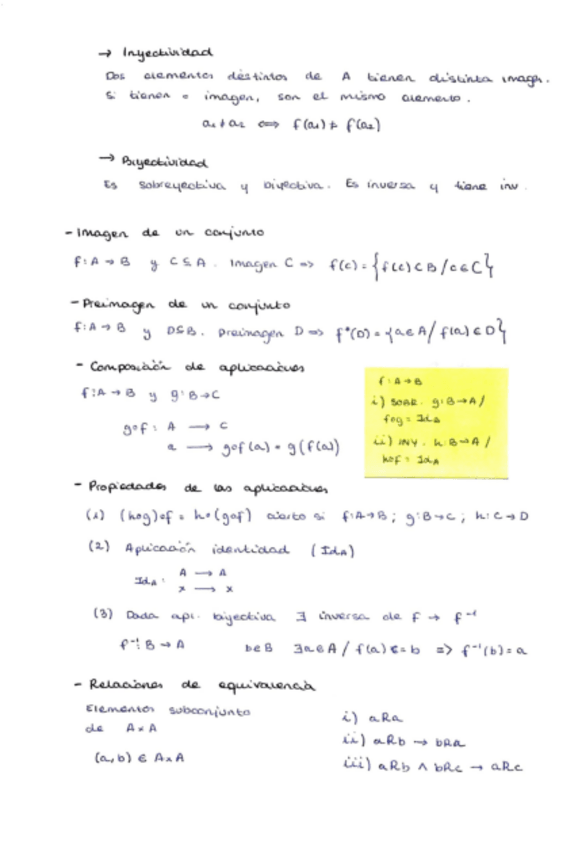 → Inyectividad
Dos elementos distintos de A tienen distinta imagn.
Si tienen = imagen, son el mismo elemento.
a₁ ≠ a₂ ⟺ f(a₁) ≠ f(a₂)
→ Biyectividad
Es sobreyectiva y biyectiva. Es inversa y tiene inv.
- Imagen de un conjunto
f: A → B y C ⊆ A. Imagen C => f(c) = {f(c) ⊂ B / c ∈ C}
- Preimagen de un conjunto
f: A → B y D ⊆ B. Preimagen D => f*(D) = {a ∈ A / f(a) ∈ D}
- Composición de aplicaciones
f: A → B y g: B → C
g∘f: A → C
a → g∘f(a) = g(f(a))
f: A → B
i) SOBR. g: B → A /
f∘g = Id
ii) INY. h: B → A /
h∘f = Id_A
- Propiedades de las aplicaciones
(1) (h∘g)∘f = h∘(g∘f) cierto si f: A → B; g: B → C; h: C → D
(2) Aplicación identidad (Id_A)
Id_A: A → A
x → x
(3) Dada apl. biyectiva ∃ inversa de f → f⁻¹
f⁻¹: B → A b ∈ B ∃a ∈ A / f(a) = b => f⁻¹(b) = a
- Relaciones de equivalencia
Elementos subconjunto
de A × A
(a, b) ∈ A × A
i) aRa
ii) aRb → bRa
iii) aRb ∧ bRc → aRc